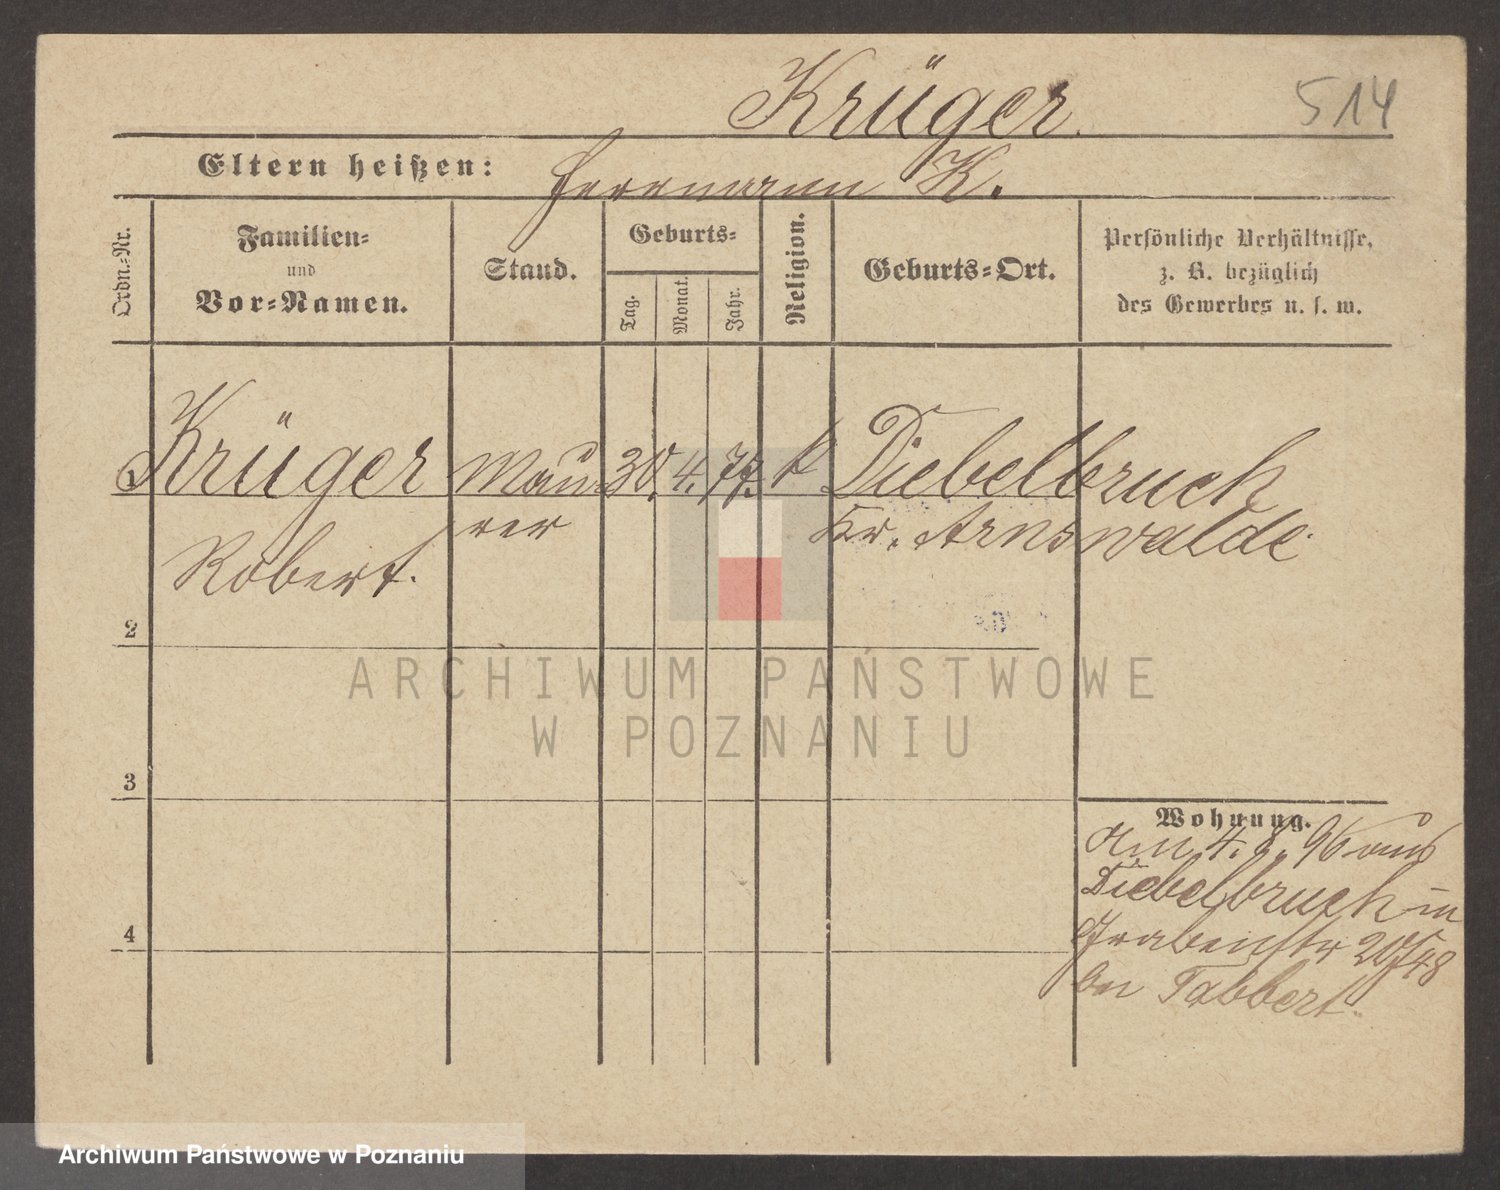 Krüger.
514
Eltern heißen: Herrmann K.
Ordn.-Nr.
Familien-
und
Vor-Namen.
Stand.
Geburts-
Tag.
Monat.
Jahr.
Religion.
Geburts-Ort.
Persönliche Verhältnisse,
z. B. bezüglich
des Gewerbes u. s. w.
Krüger Mau- 30. 4. 77. k Diebelbruch
rer Kr. Arnswalde
Robert.
2
3
4
Wohnung.
Am 4. 8. 96 aus
Diebelbruch in
Grabenstr 20/48
bei Tabbert.
ARCHIWUM PAŃSTWOWE
W POZNANIU
Archiwum Państwowe w Poznaniu